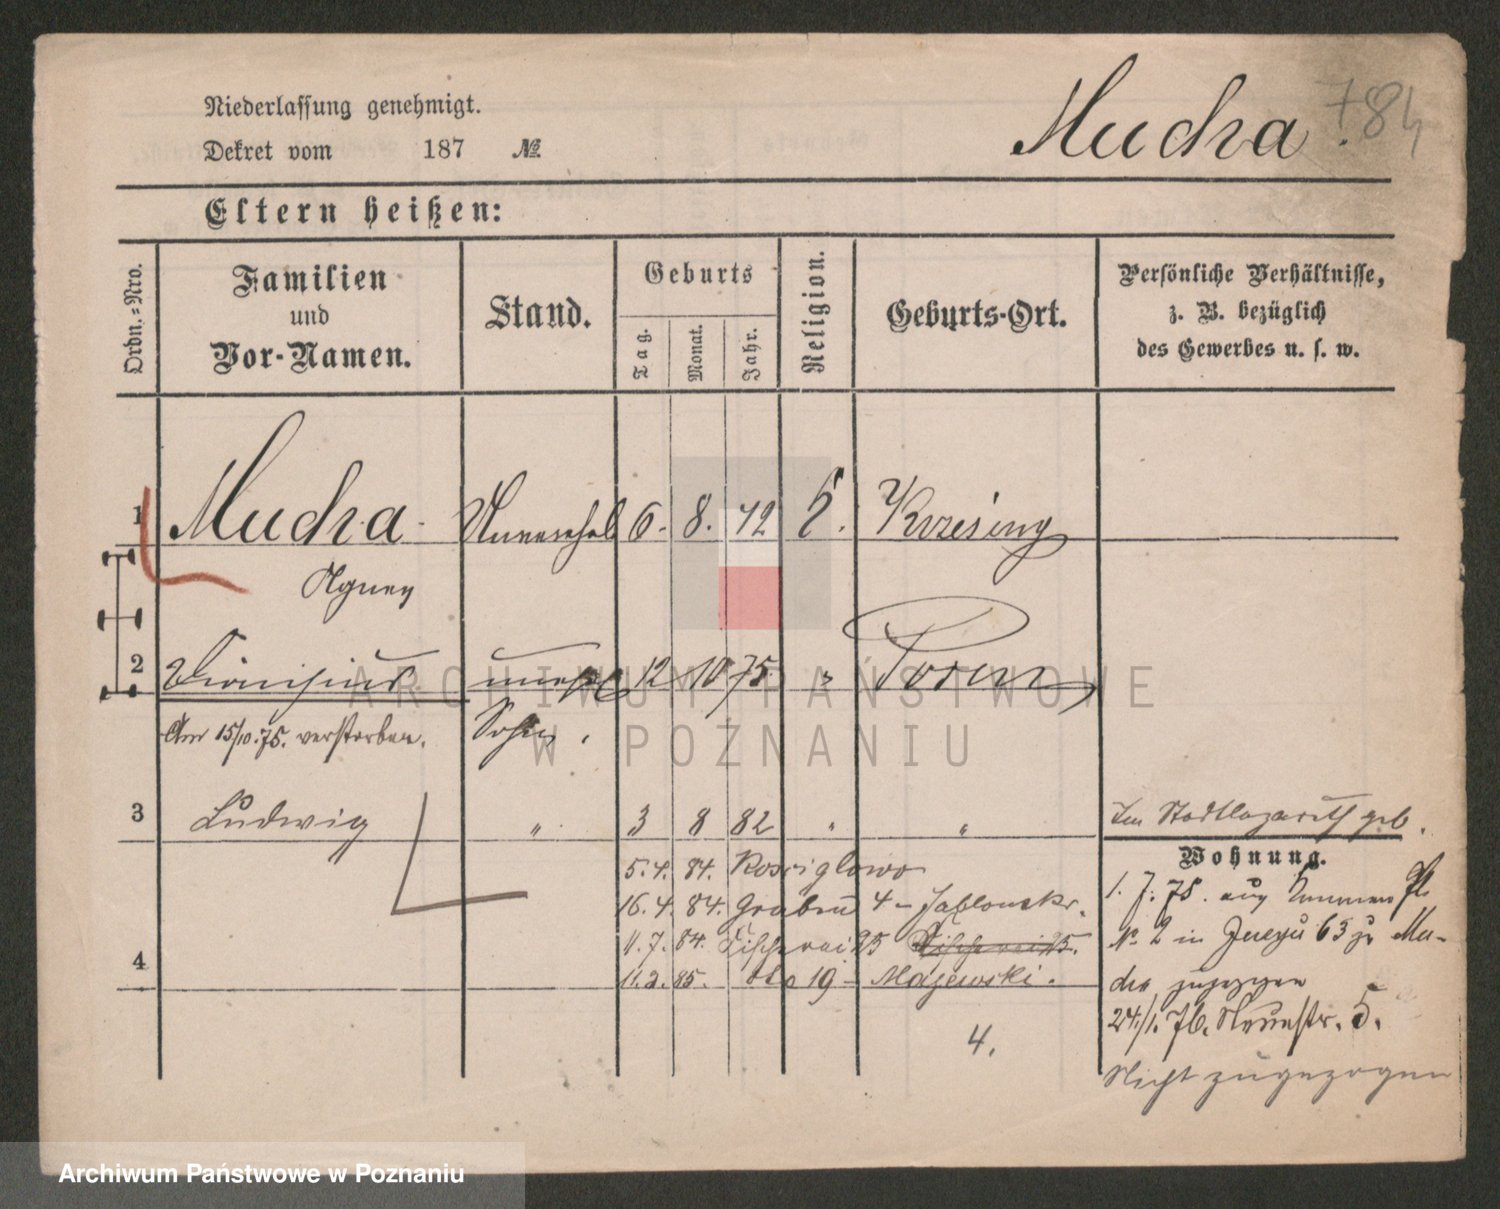 Niederlassung genehmigt.
Dekret vom 187 №
Mucha.
784
Eltern heißen:
Ordn.-Nro.
Familien
und
Vor-Namen.
Stand.
Geburts
Tag.
Monat.
Jahr.
Religion.
Geburts-Ort.
Persönliche Verhältnisse,
z. B. bezüglich
des Gewerbes u. s. w.
1 Mucha Unverehel 6. 8. Krzesiny
Agnes
2 Dionisius unehl 12 10 75. " Posen
Am 15/10.75. verstorben. Sohn.
3 Ludwig " 3 8 82 " " Im Stadtlazareth geb.
Wohnung.
5.4. 84.
16.4. 84. Graben 4 - Jablonski.
11.7.84. Fischerei 25 Fischerei 25.
4 11.2.85. dto 19 - Majewski.
4.
1. 7. 75. aus
№ 2 in 63 zu Mu-
cha zugezogen
24./1. 76. 5.
Nicht zugezogen
ARCHIWUM PAŃSTWOWE
W POZNANIU
Archiwum Państwowe w Poznaniu